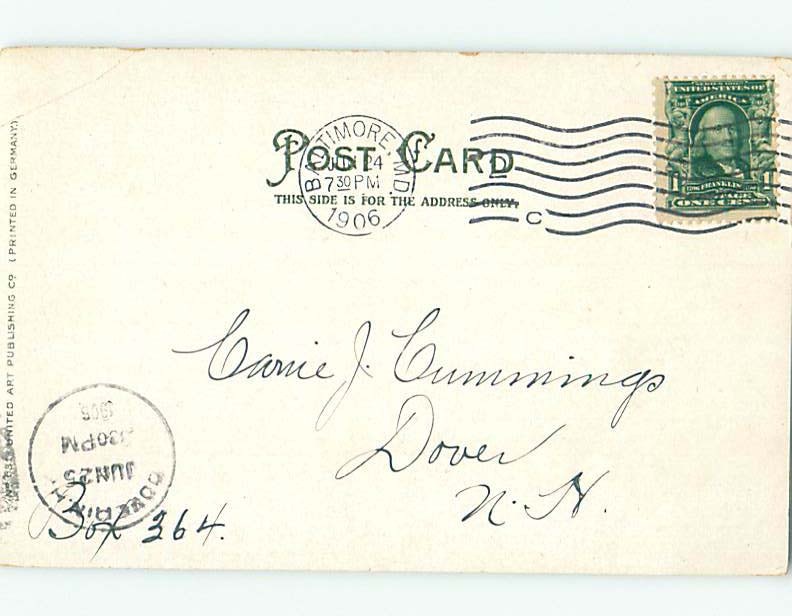 POST CARD
THIS SIDE IS FOR THE ADDRESS ONLY.
BALTIMORE, MD.
JUN 24
730 PM
1906
C
SERIES 1902
UNITED STATES OF
AMERICA
FRANKLIN
1 1
POSTAGE
ONE CENT
Carrie J. Cummings
Dover
N. H.
Box 364.
DOVER, N.H.
JUN 25
30 PM
1906
UNITED ART PUBLISHING CO (PRINTED IN GERMANY)